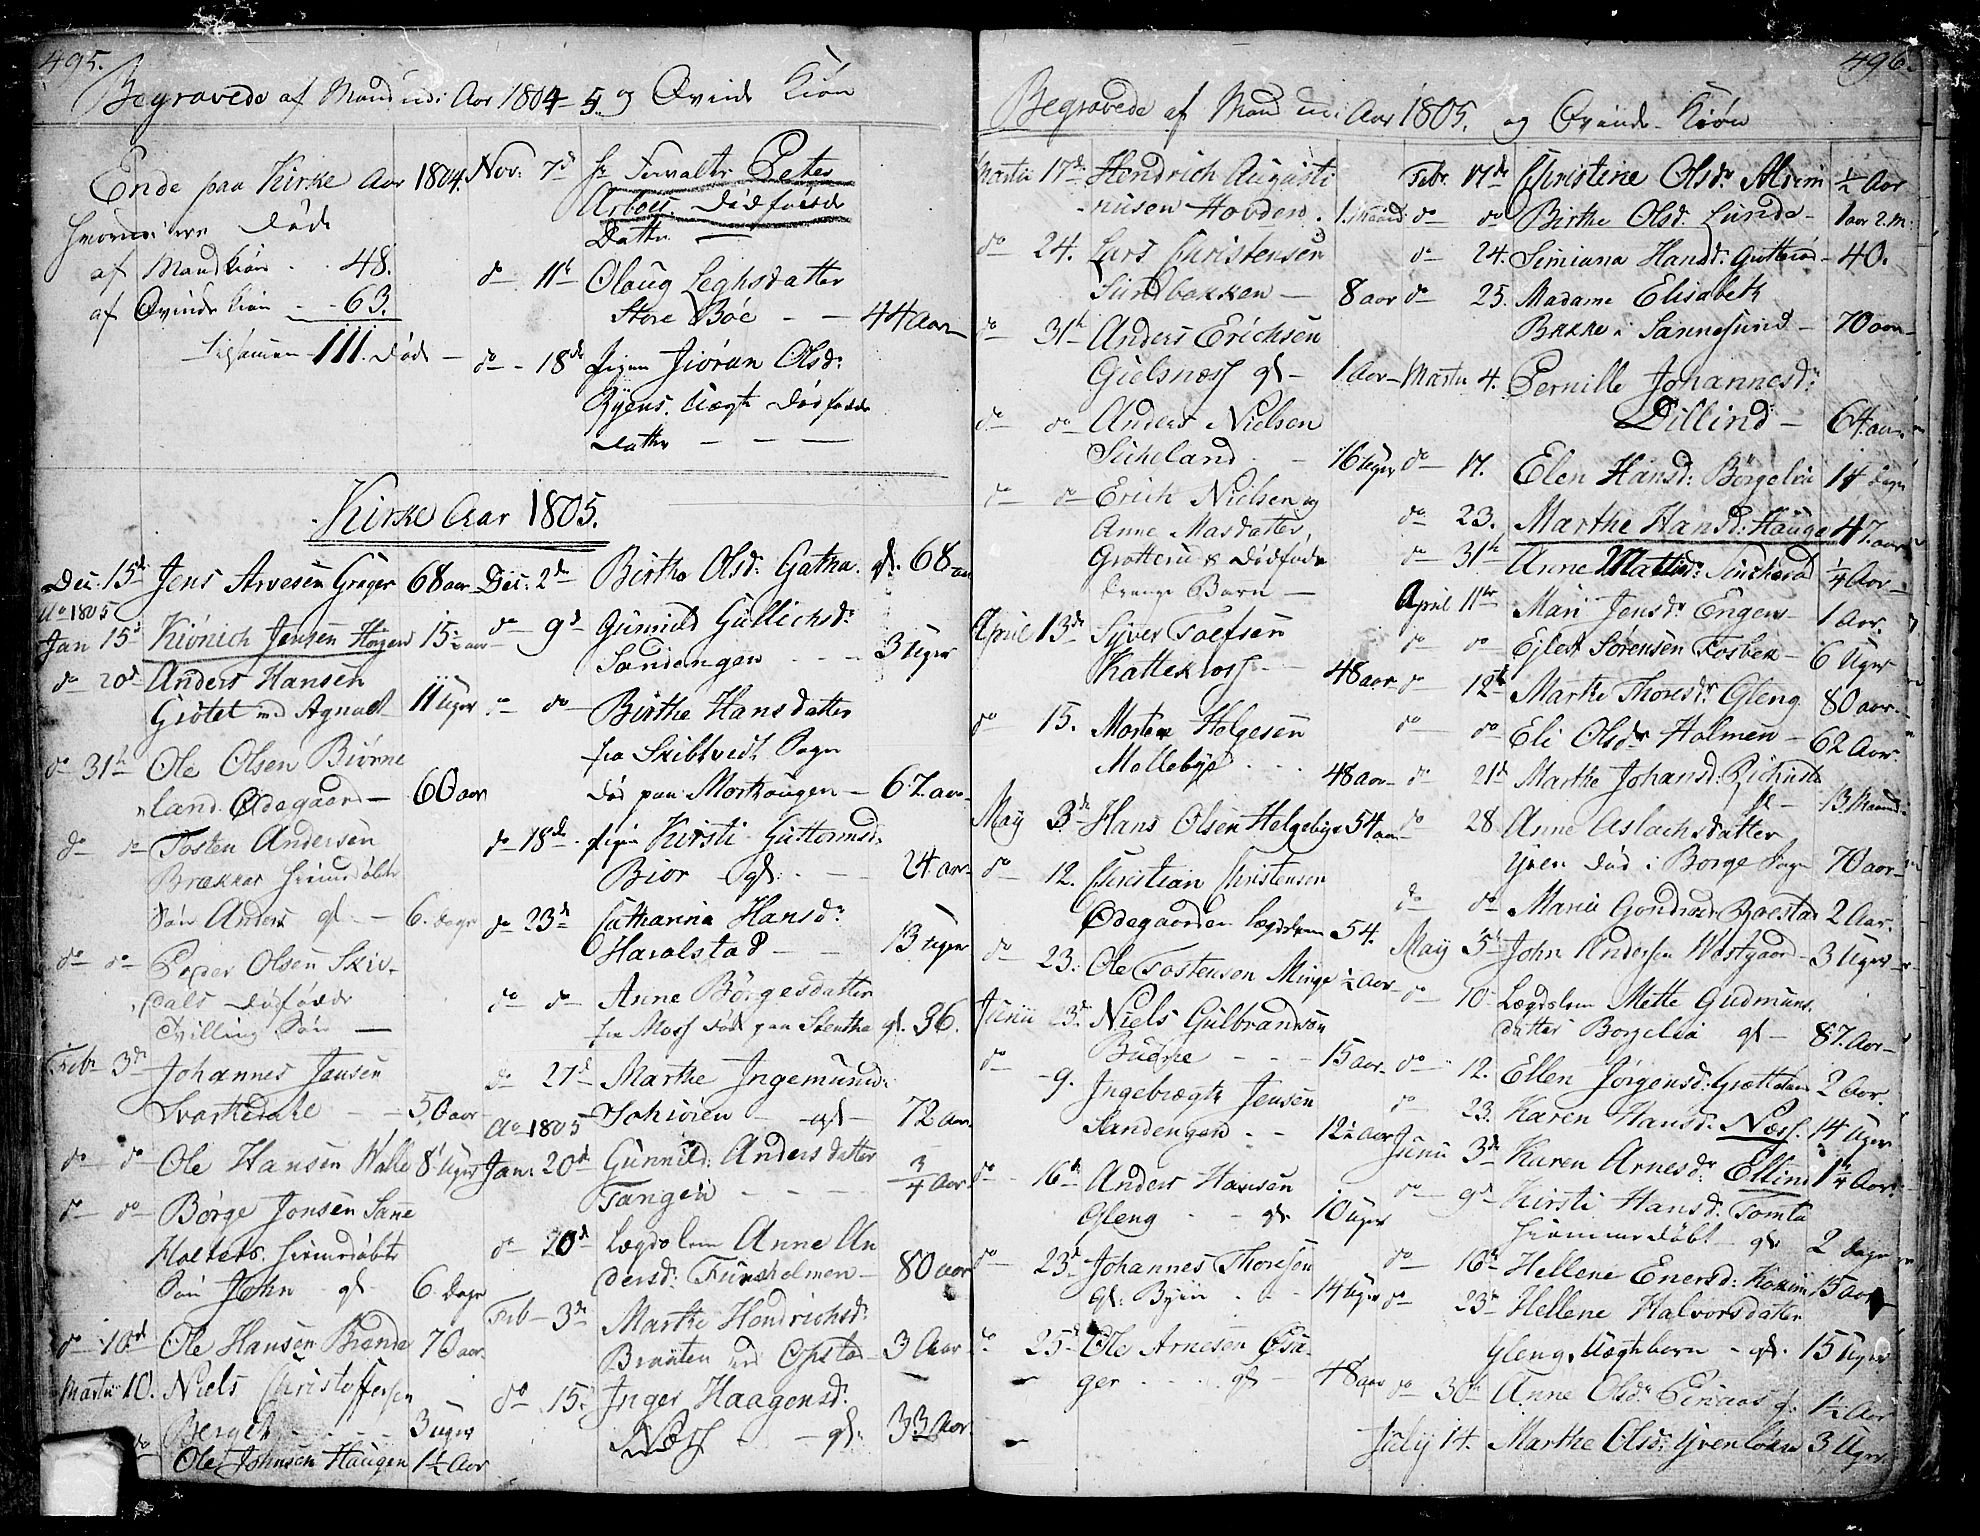 495.
Begravede af Mandkiøn: Aar 1804 - 5. og Qvinde Kiøn
Ende paa Kirke Aar 1804.
hvorudi ere Døde
af Mandkiøn - - 48.
af Qvinde kiøn - - 63.
tilsamen 111. Døde -
Nov: 7de Hr Forvalter Peter
Arboes Dødfødde
Datter -
do 11te Olaug Leghsdatter
Store Böe - - 44 Aar
do - 18de Pigen Jiöran Olsd:
Ryens. Uægte Dødfødde
Datter - - -
Kirke Aar 1805.
Dec: 15de Jens Arvesen Greger 68 aar
Ao 1805
Jan 15de Kiönich Jensen Haugen 15 aar
do 20de Anders Hansen
Grötet ved Agnalt 11 Uger
do 31te Ole Olsen Biörne
land. Ødegaard - 60 aar
do do Tosten Andersen
Brækkes hiemmedøbte
Søn Anders gl - 6. dage
do do Peder Olsen Skiv-
dals dødfødde
Tvilling Søn -
Febr 3de Johannes Jensen
Svartedale - - 50 aar
do do Ole Hansen Walle 8 Uger
do do Børge Jonsen Sane
Holters hiemmedøbte
Søn John gl - 6 dage
do 10de Ole Hansen Brende 70 aar
Martii 10. Niels Christoffersen
Berget - - - 3 uger
do Ole Johnsen Haugen 1½ Aar
Dec: 2de Birthe Olsd: Gathu. gl. 68 aar
do 9de Gunnild Gullichsd:
Sandengen - - 3 Uger
do do Birthe Hansdatter
fra Skibtvedt Sogn
død paa Morthaugen - 67. aar
do 18de Pigen Kirsti Guttormsd:
Bior gl: - 24 aar
do 23de Catharina Hansd:
Haralstad - - 13 uger
do do Anne Börgesdatter
fra Moss død paa Stentha gl. 36.
do 27de Marthe Ingemundsd:
Sohiöien - gl - 72 aar
Ao 1805
Jan: 20de Gunnild: Andersdatter
Tangen - - - - ¾ Aar
do 20de Lægdslem Anne An
dersd: Funsholmen - 80 aar
Feb - 3de Marthe Hendrichsd:
Braaten ved Opstad - 3 Aar
do 15. Inger Haagensd:
Næss - - gl. 33 Aar
496.
Begravede af Mandkiøn: Aar 1805. og Qvinde- Kiøn
Martii 17de Hendrich Augusti
nusen Hovden. 1 Maaned
do 24. Lars Christensen
Sundbakken - 8 aar
do 31te Anders Erichsen
Gielsnæss gl - 1 Aar
do do Anders Nielsen
Sicheland - - 16 Uger
do do Erich Nielsen og
Anne Masdatter
Grotterud's dødfødde
drenge Barn -
April 13de Syver Toefsen
Kattekloss - - 48 aar
do 15. Morten Helgesen
Mellebye - - - 48 aar
May 3de Hans Olsen Helgebye 54 aar
do 12. Christian Christensen
Ødegaarden lægdslem 54.
do 23. Ole Tostensen Minge ½ Aar
Junii 23de Niels Gulbrandsen
Budne - - - 15 aar
do - 9. Ingebrægt Jensen
Sandengen - - 12½ aar
do - 16de Anders Hansen
Gleng - - gl 10 Uger
do 23de Johannes Thoresen
gl. Byen - - - 14 Uger
do 25de Ole Arnesen Qva-
ger - - - gl - 48 aar
Febr. 17de Christine Olsdr Alvim ½ Aar
do do Birthe Olsd: Lunde - 1 aar 2. M:
do 24. Simiana Hansd: Gutterød - 40.
do 25. Madame Elisabeth
Bække i Sannesund - 70 aar
Martii 4. Pernille Johannesdr
Dillind - 64 aar
do - 17. Elen Hansd: Børgelia 14 dage
do 23. Marthe Hansd: Hauge 47 aar
do 31te Anne Mattisd: ¼ Aar
April 11te Mari Jensdr Engen - 1 Aar.
do do Ejlert Sörensen Fosbek - 6 Uger
do 12te Marthe Thoresdr Gleng 80 aar
do do Eli Olsdr Holmen - 62 Aar.
do 21de Marthe Johansd:
gl - 13 Maaned:
do 28 Anne Aslachsdatter
Yven død i Borge Sogn 70 aar
do do Maria Gondersdr Boestad 2 Aar.
May 5te John Andersen Westgaard 3 Uger
do 10. Lægdslem Mette Gudmuns.
datter Borgelia gl - 87. Aar
do 12. Ellen Jörgensd: Grøttelund 2 Aar.
do 23. Karen Hansd: Næss. 14 Uger
Junii 3de Karen Arnesdr Elling 1¼ Aar
do - 9de Kirsti Hansd: Tomta
hiemmedøbt gl 2 dage
do 16de Hellene Enersd: 15 aar
do 23de Hellene Halvorsdatter
Gleng. Uægtebarn - gl. 15 Uger
do 30te Anne Olsdr gl. 1½ Aar
July 14. Marthe Olsd: Yvenløkken 3 Uger